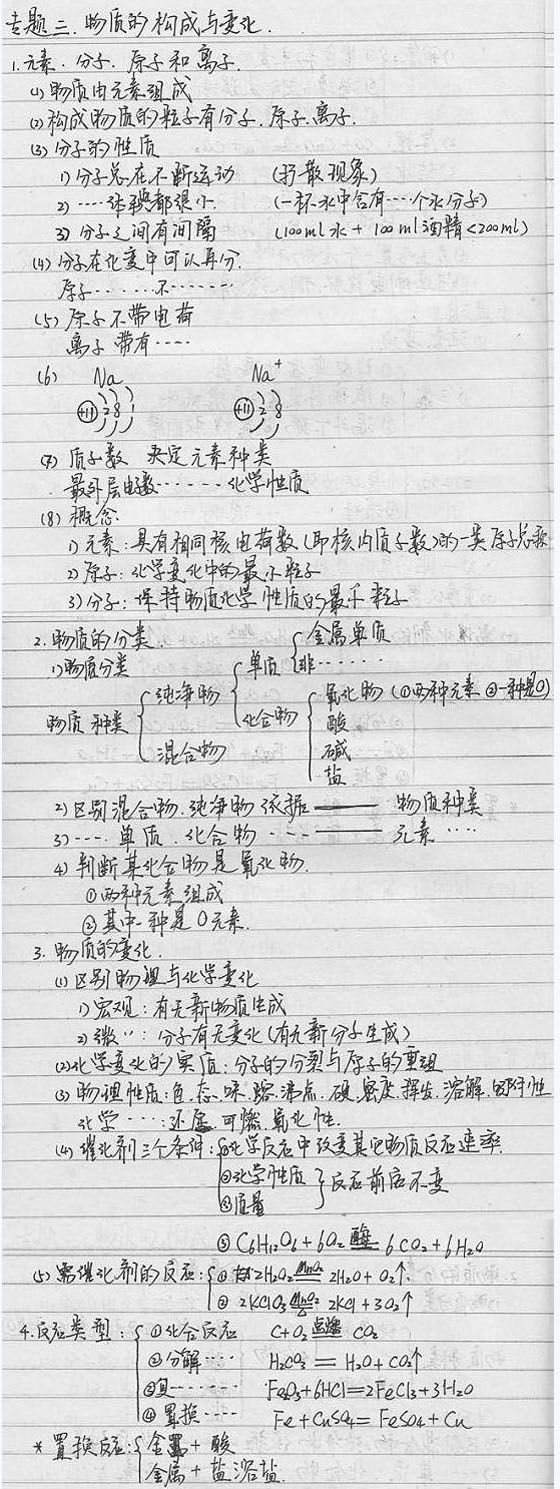 专题三.物质的构成与变化.
1.元素.分子.原子和离子.
(1)物质由元素组成
(2)构成物质的粒子有分子.原子.离子.
(3)分子的性质
1)分子总在不断运动 (扩散现象)
2)····体积都很小. (一杯水中含有····个水分子)
3)分子之间有间隔 (100ml水+100ml酒精<200ml)
(4)分子在化变中可以再分.
原子······不·······
(5)原子不带电荷
离子 带有····
(6) Na Na⁺
+11 2 8 1 +11 2 8
(7)质子数 决定元素种类
最外层电子数······化学性质
(8)概念
1)元素:具有相同核电荷数(即核内质子数)的一类原子总称
2)原子:化学变化中的最小粒子
3)分子:保持物质化学性质的最小粒子
2.物质的分类.
1)物质分类
物质种类{纯净物{单质{金属单质
非······
化合物{氧化物(①两种元素②一种是O)
酸
碱
盐
混合物
2)区别混合物.纯净物依据——物质种类
3)····单质.化合物····——元素····
4)判断某化合物是氧化物.
①两种元素组成
②其中一种是O元素.
3.物质的变化.
(1)区别物理与化学变化
1)宏观:有无新物质生成
2)微··:分子有无变化(有无新分子生成)
(2)化学变化的实质:分子的分裂与原子的重组
(3)物理性质:色.态.味.熔.沸点.硬.密度.挥发.溶解.吸附性
化学····:还原.可燃.氧化性.
(4)催化剂三个条件:{①化学反应中改变其它物质反应速率.
②化学性质
③质量 }反应前后不变
③C₆H₁₂O₆+6O₂ 酶= 6CO₂+6H₂O
(5)需催化剂的反应:{①2H₂O₂ MnO₂= 2H₂O+O₂↑.
②2KClO₃ MnO₂=△ 2KCl+3O₂↑
4.反应类型:{①化合反应 C+O₂ 点燃= CO₂
②分解···· H₂CO₃=H₂O+CO₂↑
③复······ Fe₂O₃+6HCl=2FeCl₃+3H₂O
④置换···· Fe+CuSO₄=FeSO₄+Cu
*置换反应:{金属+酸
金属+盐溶盐.